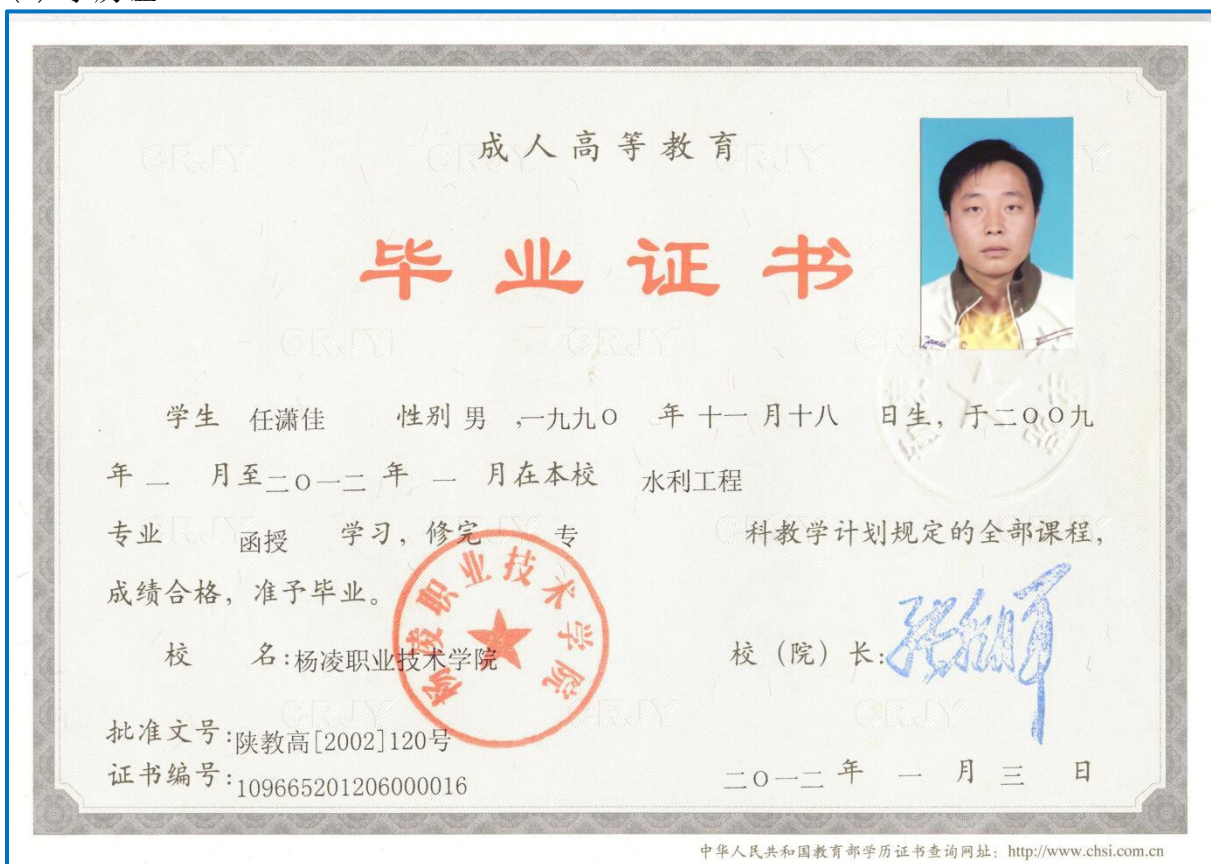 成人高等教育
毕业证书
学生 任潇佳 性别 男 ,一九九〇 年 十一 月 十八 日生, 于二〇〇九
年 一 月至二〇一二 年 一 月在本校 水利工程
专业 函授 学习, 修完 专 科教学计划规定的全部课程,
成绩合格, 准予毕业。
校 名:杨凌职业技术学院 校（院）长:
杨凌职业技术学院
批准文号:陕教高[2002]120号
证书编号:109665201206000016 二〇一二 年 一 月 三 日
中华人民共和国教育部学历证书查询网址: http://www.chsi.com.cn
CRJY